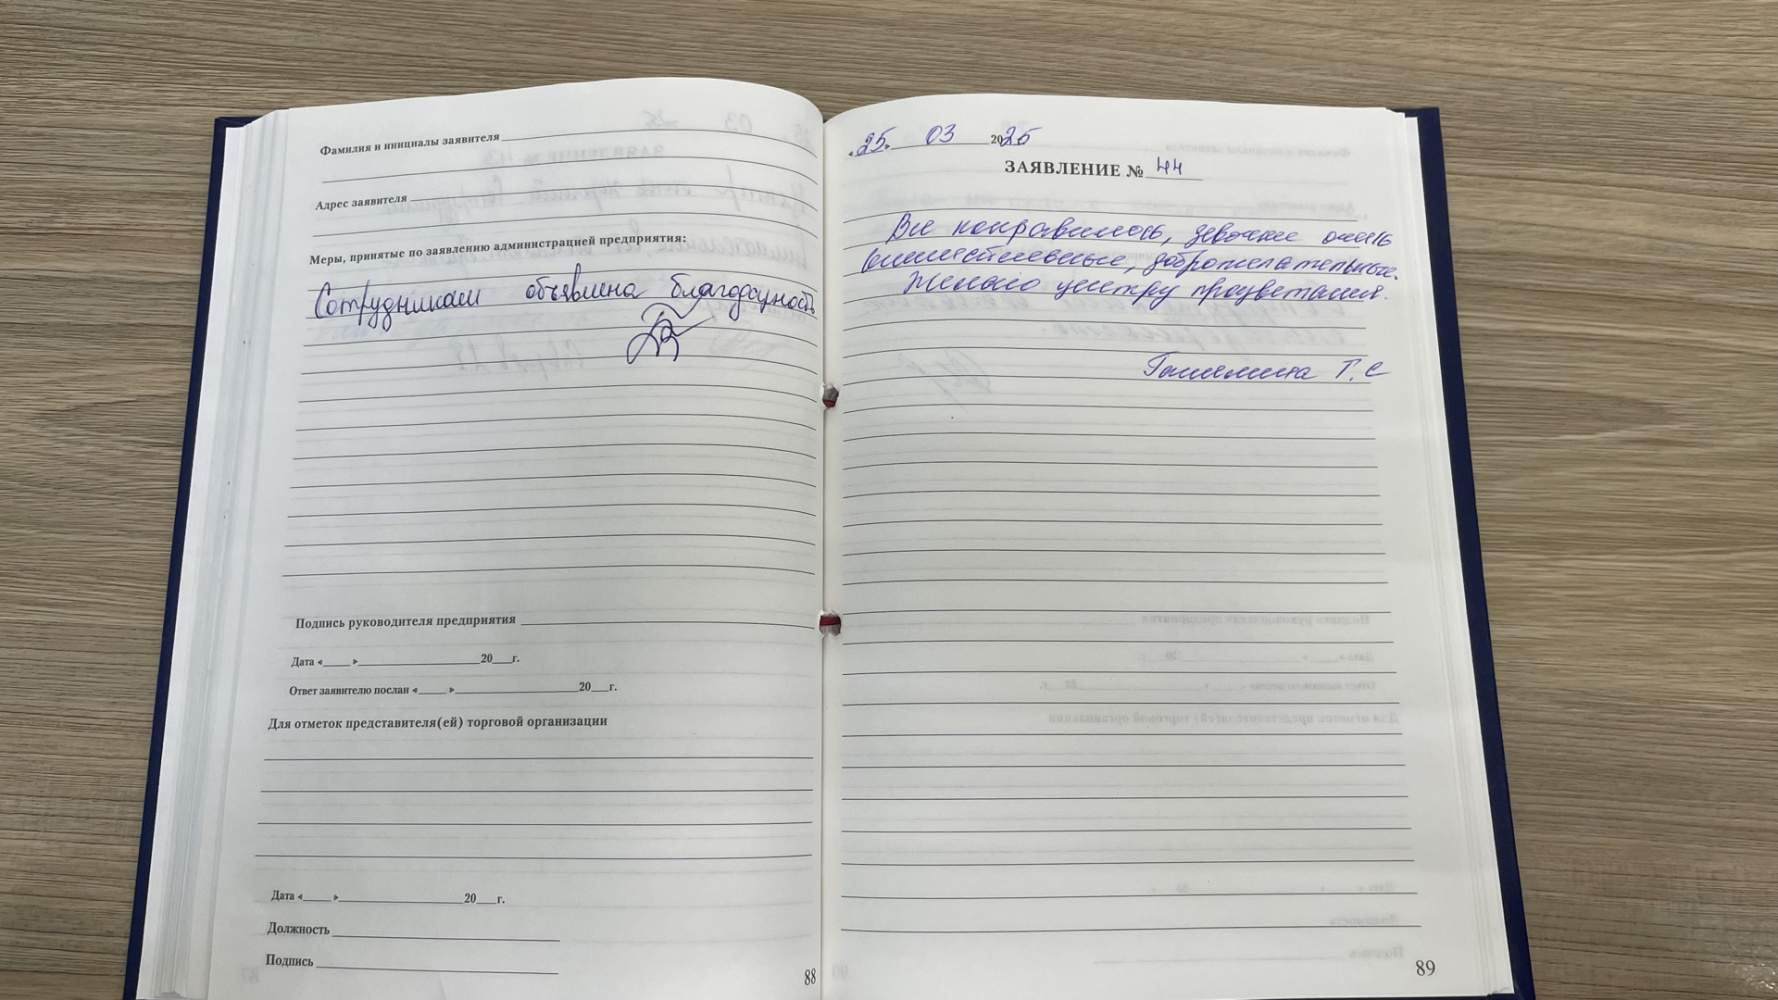 Фамилия и инициалы заявителя
Адрес заявителя
Меры, принятые по заявлению администрацией предприятия:
Сотрудникам объявлена благодарность
Подпись руководителя предприятия
Дата « » 20 г.
Ответ заявителю послан « » 20 г.
Для отметок представителя(ей) торговой организации
Дата « » 20 г.
Должность
Подпись
88
«25» 03 2025
ЗАЯВЛЕНИЕ № 44
Все понравилось, девочки очень
внимательные, доброжелательные.
Желаю центру процветания.
Т.С
89